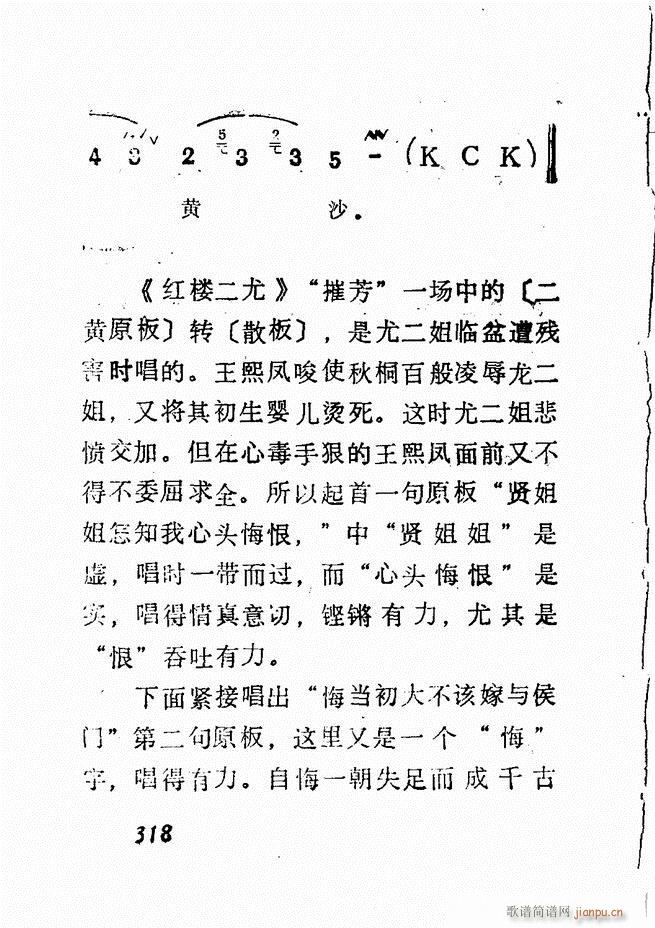 4 3 2 3 3 5 - (K C K)
黄 沙。
《红楼二尤》“摧芳”一场中的〔二
黄原板〕转〔散板〕，是尤二姐临盆遭残
害时唱的。王熙凤唆使秋桐百般凌辱龙二
姐，又将其初生婴儿烫死。这时尤二姐悲
愤交加。但在心毒手狠的王熙凤面前又不
得不委屈求全。所以起首一句原板“贤姐
姐怎知我心头悔恨，”中“贤姐姐”是
虚，唱时一带而过，而“心头悔恨”是
实，唱得情真意切，铿锵有力，尤其是
“恨”吞吐有力。
下面紧接唱出“悔当初大不该嫁与侯
门”第二句原板，这里又是一个“悔”
字，唱得有力。自悔一朝失足而成千古
318
歌谱简谱网 jianpu.cn